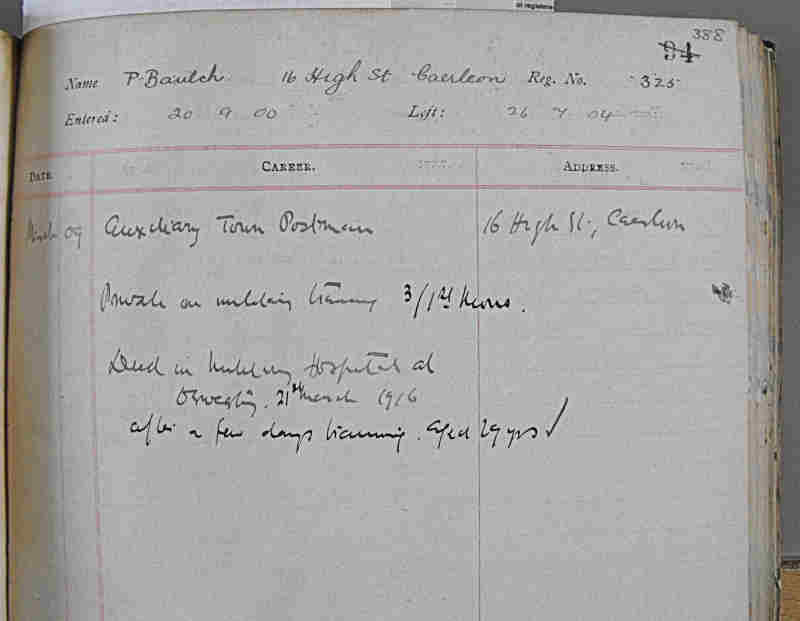 388
94
Name P. Baulch. 16 High St Caerleon Reg. No. 325
Entered: 20 9 00 Left: 26 7 04
DATE CAREER. ADDRESS.
March 09 Auxiliary Town Postman 16 High St., Caerleon
Private on military training 3/1st Mons.
Died in Military Hospital at
Oswestry. 21st March 1916
after a few days training. aged 29 yrs ✓